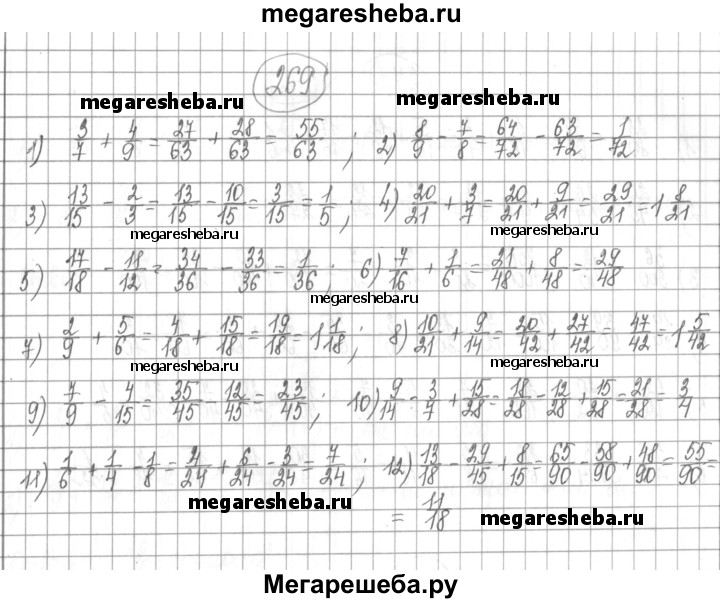 megaresheba.ru
269
megaresheba.ru megaresheba.ru
1) 3/7 + 4/9 = 27/63 + 28/63 = 55/63 ; 2) 8/9 - 7/8 = 64/72 - 63/72 = 1/72
3) 13/15 - 2/3 = 13/15 - 10/15 = 3/15 = 1/5 ; 4) 20/21 + 3/7 = 20/21 + 9/21 = 29/21 = 1 8/21
megaresheba.ru megaresheba.ru
5) 17/18 - 11/12 = 34/36 - 33/36 = 1/36 ; 6) 7/16 + 1/6 = 21/48 + 8/48 = 29/48
megaresheba.ru
7) 2/9 + 5/6 = 4/18 + 15/18 = 19/18 = 1 1/18 ; 8) 10/21 + 9/14 = 20/42 + 27/42 = 47/42 = 1 5/42
megaresheba.ru megaresheba.ru
9) 7/9 - 4/15 = 35/45 - 12/45 = 23/45 ; 10) 9/14 - 3/7 + 15/28 = 18/28 - 12/28 + 15/28 = 21/28 = 3/4
11) 1/6 + 1/4 - 1/8 = 4/24 + 6/24 - 3/24 = 7/24 ; 12) 13/18 - 29/45 + 8/15 = 65/90 - 58/90 + 48/90 = 55/90 =
= 11/18
megaresheba.ru megaresheba.ru
Мегарешеба.ру